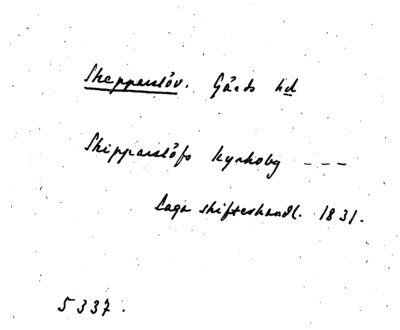 Skepparslöv. Gärds hd
Skipparslöfs kyrkoby ---
Laga skifteshandl. 1831.
5337.